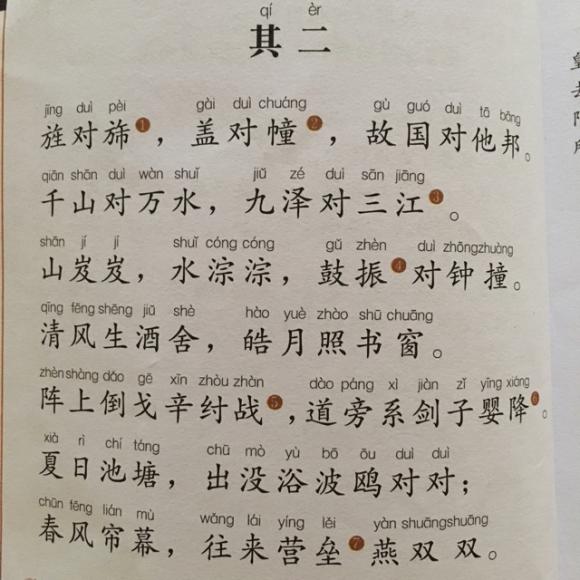 qí èr
其二
jīng duì pèi gài duì chuáng gù guó duì tā bāng
旌对旆❶，盖对幢❷，故国对他邦。
qiān shān duì wàn shuǐ jiǔ zé duì sān jiāng
千山对万水，九泽对三江❸。
shān jí jí shuǐ cóng cóng gǔ zhèn duì zhōng zhuàng
山岌岌，水淙淙，鼓振❹对钟撞。
qīng fēng shēng jiǔ shè hào yuè zhào shū chuāng
清风生酒舍，皓月照书窗。
zhèn shàng dǎo gē xīn zhòu zhàn dào páng xì jiàn zǐ yīng xiáng
阵上倒戈辛纣战❺，道旁系剑子婴降❻。
xià rì chí táng chū mò yù bō ōu duì duì
夏日池塘，出没浴波鸥对对；
chūn fēng lián mù wǎng lái yíng lěi yàn shuāng shuāng
春风帘幕，往来营垒❼燕双双。